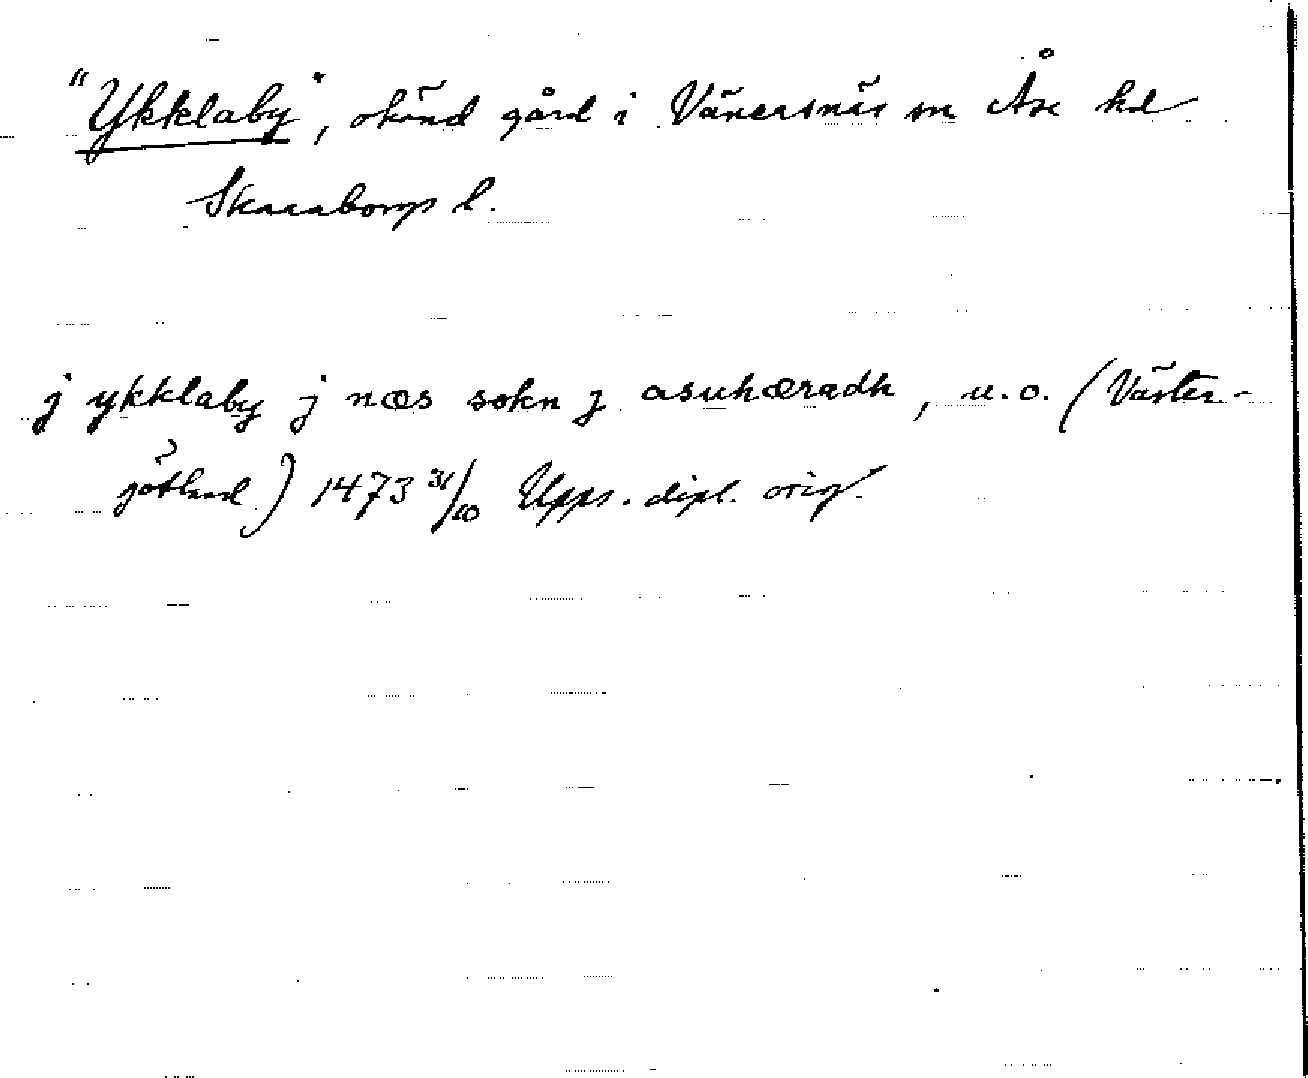 "Ykklaby", okänd gård i Vänersnäs sn Åse hd
Skaraborgs l.
j ykklaby j næs sokn j asuhæradh, u.o. (Väster-
götland) 1473 31/10 Upps. dipl. orig.